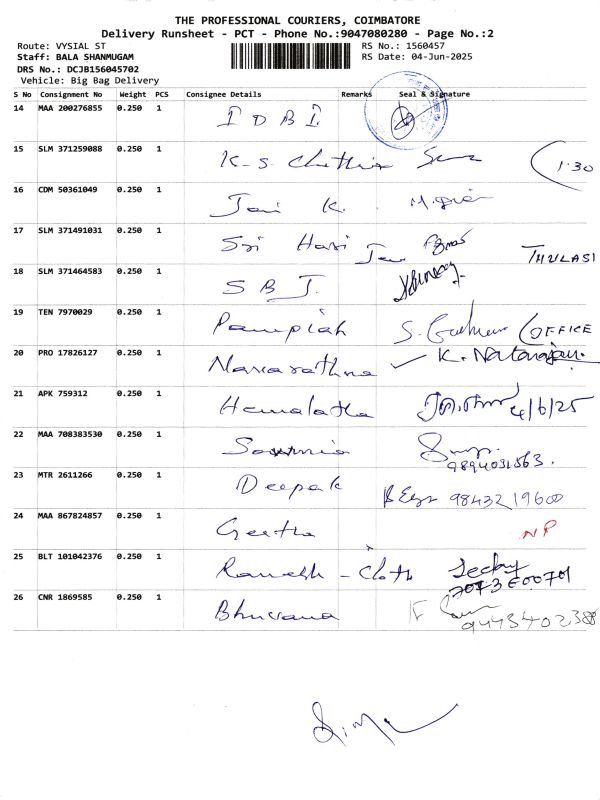 THE PROFESSIONAL COURIERS, COIMBATORE
Delivery Runsheet - PCT - Phone No.:9047080280 - Page No.:2
Route: VYSIAL ST RS No.: 1560457
Staff: BALA SHANMUGAM RS Date: 04-Jun-2025
DRS No.: DCJB156045702
Vehicle: Big Bag Delivery
S No Consignment No Weight PCS Consignee Details Remarks Seal & Signature
14 MAA 200276855 0.250 1 I D B I
15 SLM 371259088 0.250 1 K-S. 1.30
16 CDM 50361049 0.250 1 K.
17 SLM 371491031 0.250 1 Sri Hari THULASI
18 SLM 371464583 0.250 1 S B I
19 TEN 7970029 0.250 1 OFFICE
20 PRO 17826127 0.250 1 Navarathna K. Natarajan.
21 APK 759312 0.250 1 Hemalatha 4/6/25
22 MAA 708383530 0.250 1
9894031563.
23 MTR 2611266 0.250 1 Deepak 98432 19600
24 MAA 867824857 0.250 1 Geetha NP
25 BLT 101042376 0.250 1 Ramesh - Cloth
26 CNR 1869585 0.250 1 Bhuvana